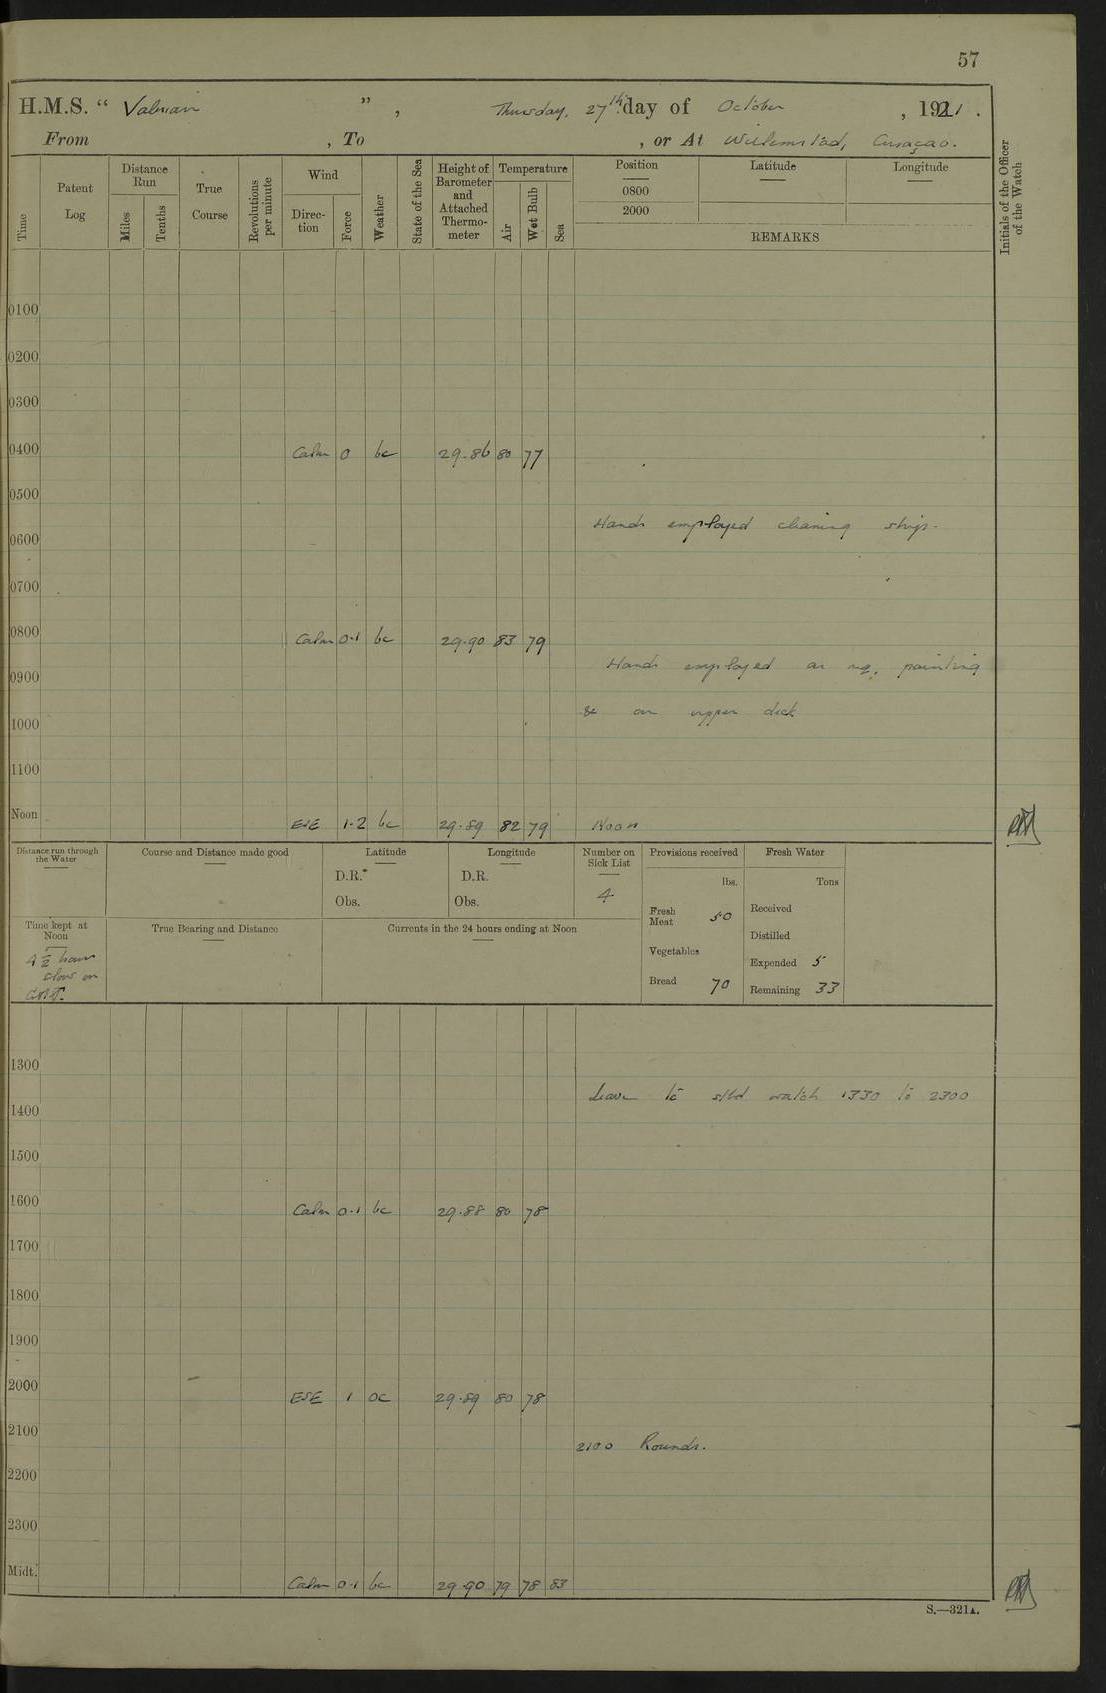 57
H.M.S. “ Valerian ” , Thursday, 27th day of October , 1921 .
From , To , or At Willemstad, Curaçao.
Time
Patent Log
Distance Run
Miles
Tenths
True Course
Revolutions per minute
Wind
Direction
Force
Weather
State of the Sea
Height of Barometer and Attached Thermometer
Temperature
Air
Wet Bulb
Sea
Position
0800
2000
Latitude
Longitude
REMARKS
Initials of the Officer of the Watch
0100
0200
0300
0400 Calm 0 bc 29.86 80 77
0500
Hands employed cleaning ship.
0600
0700
0800 Calm 0-1 bc 29.90 83 79
Hands employed painting
0900
& on upper deck
1000
1100
Noon ESE 1-2 bc 29.89 82 79 Noon
Distance run through the Water
Course and Distance made good
Latitude
D.R.
Obs.
Longitude
D.R.
Obs.
Number on Sick List
4
Provisions received
lbs.
Fresh Meat 50
Vegetables
Bread 70
Fresh Water
Tons
Received
Distilled
Expended 5
Remaining 33
Time kept at Noon
4½ hours slow on G.M.T.
True Bearing and Distance
Currents in the 24 hours ending at Noon
1300
Leave to stbd watch 1330 to 2300
1400
1500
1600 Calm 0-1 bc 29.88 80 78
1700
1800
1900
2000 ESE 1 oc 29.89 80 78
2100
2100 Rounds.
2200
2300
Midt. Calm 0-1 bc 29.90 79 78 83
S.—321A.